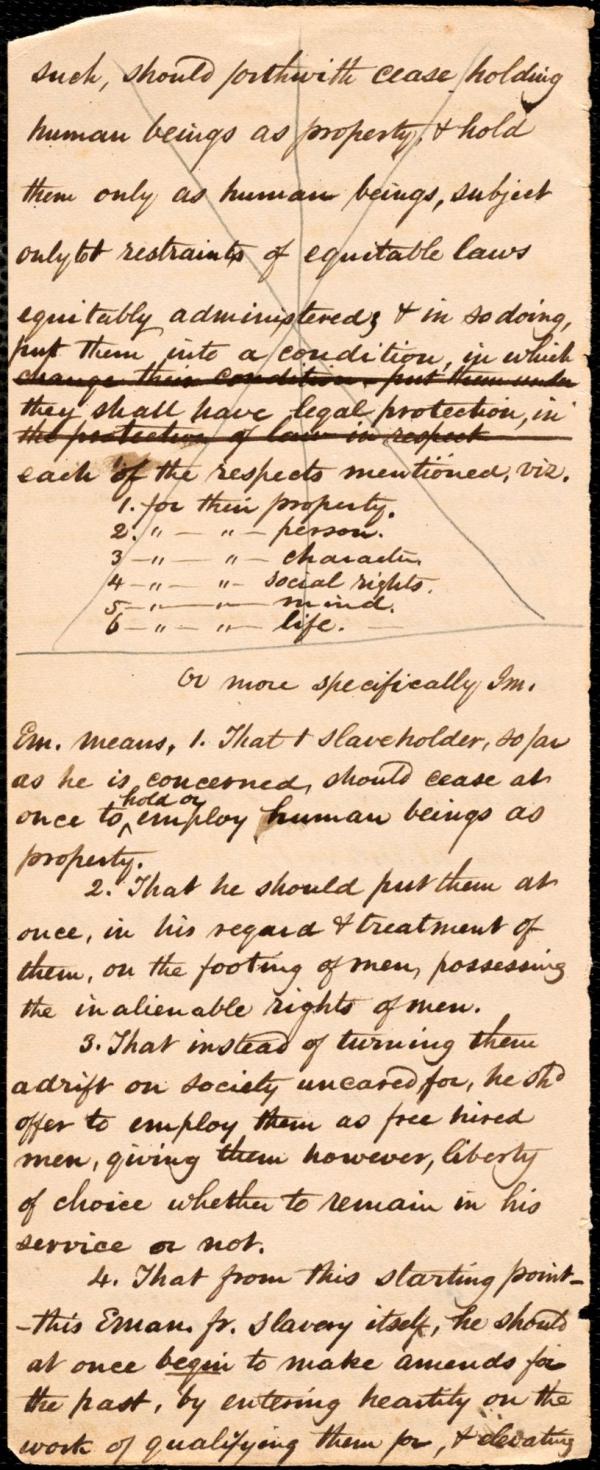 such, should forthwith cease holding
human beings as property, & hold
them only as human beings, subject
only to restraints of equitable laws
equitably administered; & in so doing,
put them into a condition, in which
change their condition – put them under
they shall have legal protection, in
the protection of law in respect
each of the respects mentioned, viz.
1. for their property.
2. " — " – person.
3 – " — " – character.
4 – " — " – social rights.
5 – " — " – mind.
6 – " — " – life.
Or more specifically Im.
Em. means, 1. That t slaveholder, so far
as he is concerned, should cease at
hold or
once to employ human beings as
property.
2. That he should put them at
once, in his regard & treatment of
them, on the footing of men, possessing
the inalienable rights of men.
3. That instead of turning them
adrift on society uncared for, he shd
offer to employ them as free hired
men, giving them however, liberty
of choice whether to remain in his
service or not.
4. That from this starting point–
–this Eman. fr. slavery itself, he should
at once begin to make amends for
the past, by entering heartily on the
work of qualifying them for, & elevating